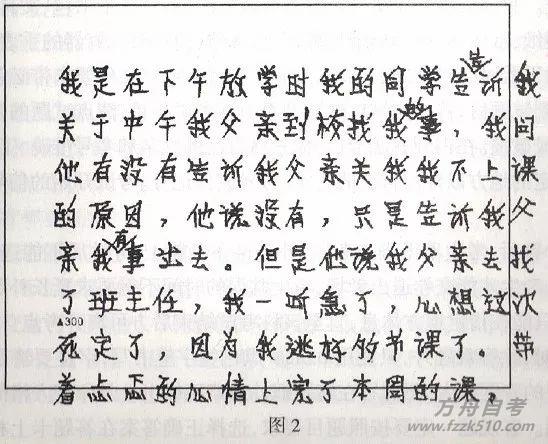 我是在下午放学时我的同学告诉我
关于中午我父亲到校找我的事,我问
他有没有告诉我父亲关我我不上课
的原因,他说没有,只是告诉我父
亲我有事出去。但是他说我父亲去找
了班主任,我一听急了,心想这次
▲300
死定了,因为我逃好的节课了。带
着忐忑的心情上完了本周的课,
图2
方舟自考
www.fzzk510.com